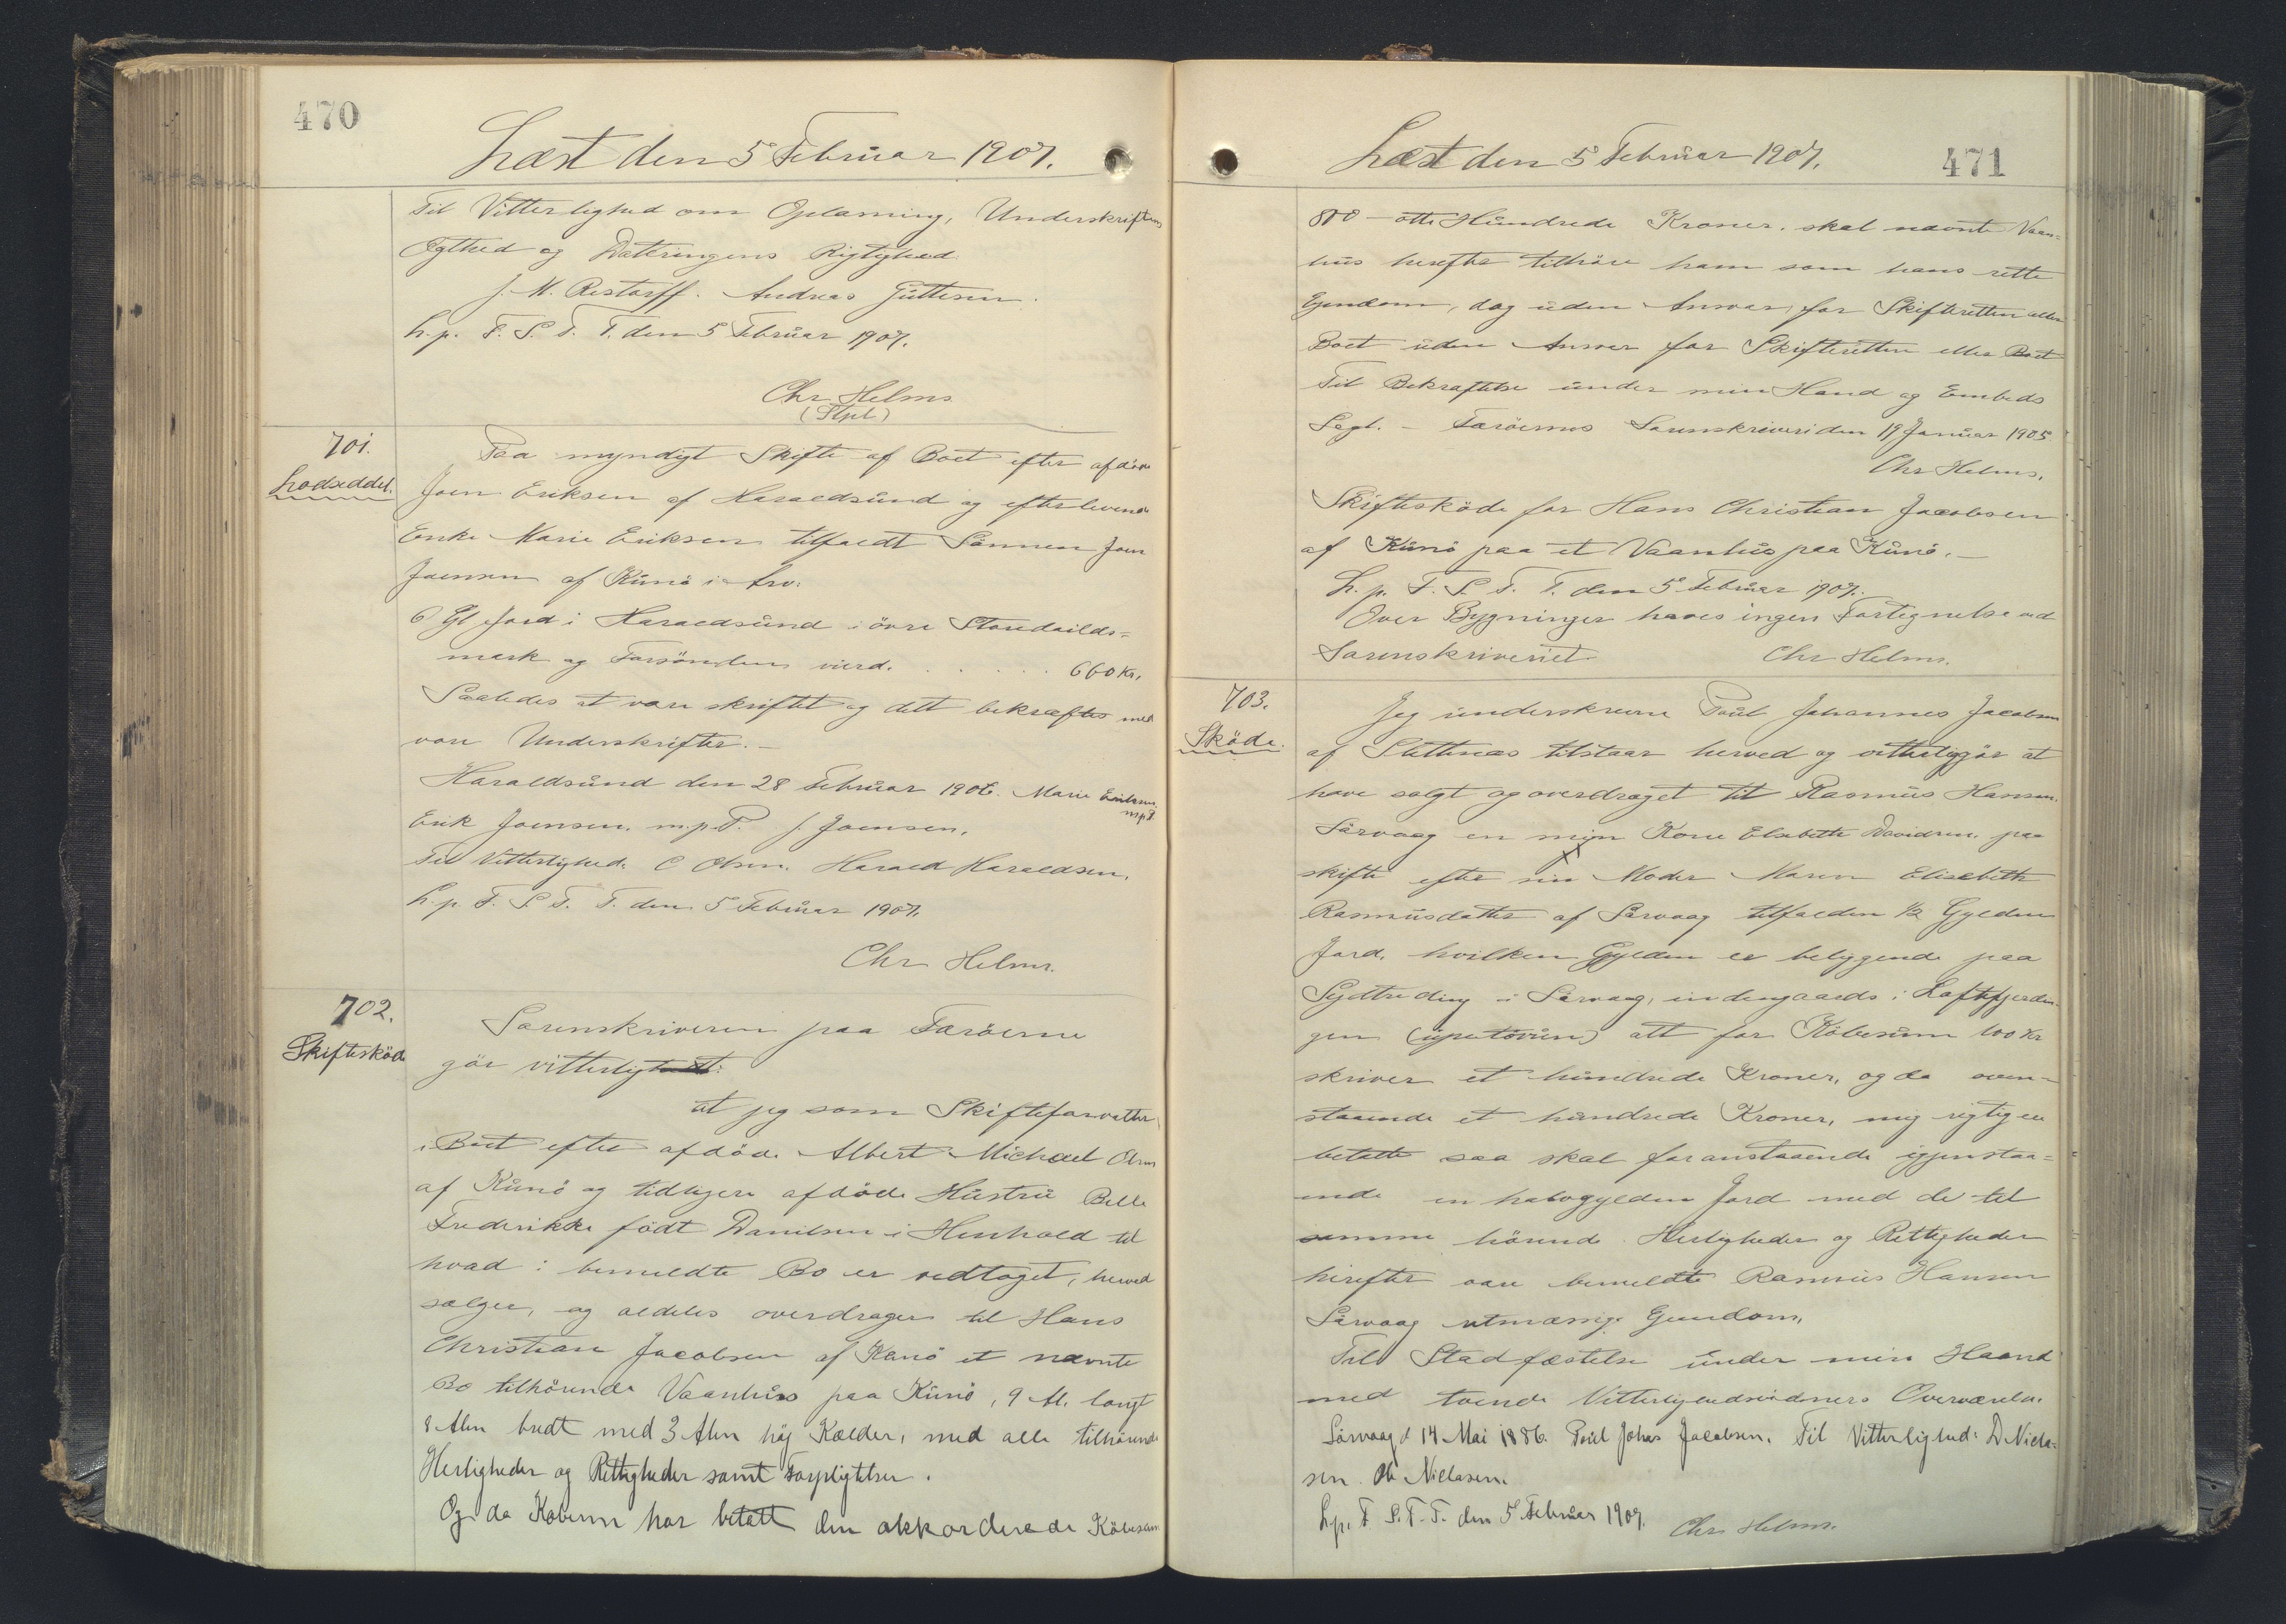 470
Læst den 5 Februar 1907.
Til Vitterlighed om Oplæsning, Underskriftens
Ægthed og Dateringens Rigtighed.
J. M. Restorff. Andreas Juttesen.
L. p. F. S. T. T. den 5 Februar 1907.
Chr Helms
(Stpl.)
701.
Lodseddel.
Paa myndigt Skifte af Boet efter afdøde
Joen Eriksen af Haraldsund og efterlevende
Enke Marie Eriksen tilfaldt Sønnen Joen
Joensen af Kunö i Arv:
6 Gl Jord i Haraldsund i övre
mark og værd. . . . . . 660 Kr.
Saaledes at være skiftet og delt bekræftes med
vore Underskrifter. –
Haraldsund den 28 Februar 1906. Marie Eriksen
m.p.P.
Erik Joensen. m.p.P. J. Joensen.
Til Vitterlighed. C Olsen. Harald Haraldsen.
L. p. F. S. T. T. den 5 Februar 1907.
Chr Helms.
702.
Skifteskøde
Sorenskriveren paa Færöerne
gör vitterligt:
at jeg som Skifteforvalter
i Boet efter afdöde Albert Michael Olsen
af Kunö og tidligere afdöde Hustru Belle
Frederikke födt Danielsen i Henhold til
hvad i bemeldte Bo er vedtaget, herved
sælger, og aldeles overdrager til Hans
Christian Jacobsen af Kunö et nævnte
Bo tilhörende Vaanhus paa Kunö, 9 Al. langt
8 Alen bredt med 3 Alen höj Kælder, med alle tilhörende
Herligheder og Rettigheder samt Forpligtelser.
Og da Köberen har betalt den akkorderede Köbesum
Læst den 5 Februar 1907.
471
800 – otte Hundrede Kroner. skal nævnte Vaan-
hus herefter tilhöre ham som hans rette
Ejendom, dog uden Ansvar for Skifteretten eller
Boet uden Ansvar for Skifteretten eller Boet
Til Bekræftelse under min Haand og Embeds
Segl. – Færöernes Sorenskriveri den 19 Januar 1905.
Chr Helms.
Skifteskøde for Hans Christian Jacobsen
af Kunö paa et Vaanhus paa Kunö. –
L. p. F. S. T. T. den 5 Februar 1907.
Over Bygninger haves ingen Fortegnelse ved
Sorenskriveriet Chr Helms.
703.
Sköde.
Jeg underskrevne Poul Johannes Jacobsen
af Slettenæs tilstaar herved og vitterliggör at
have solgt og overdraget til Rasmus Hansen
Sörvaag en min Kone Elsebeth Davidsen. paa
skifte efter sin Moder Maren Elisebeth
Rasmusdatter af Sörvaag tilfalden ½ Gylden
Jord, hvilken Gylden er beliggende paa
i Sörvaag, indengaards i
gen (uputovun) alt for Köbesum 100 Kr
skriver et hundrede Kroner, og da oven-
staaende et hundrede Kroner, mig rigtig er
betalte saa skal foranstaaende igjenstaa-
ende en halvgylden Jord med de til
samme hörende Herligheder og Rettigheder
herefter være bemeldte Rasmus Hansen
Sörvaag Ejendom.
Til Stadfæstelse under min Haand
med tvende Vitterlighedsvidners Overværelse.
Sörvaag d 14 Mai 1886. Poul Johs Jacobsen. Til Vitterlighed: D Niela-
sen. Ole Nielasen.
L. p. F. S. T. T. den 5 Februar 1907. Chr Helms.